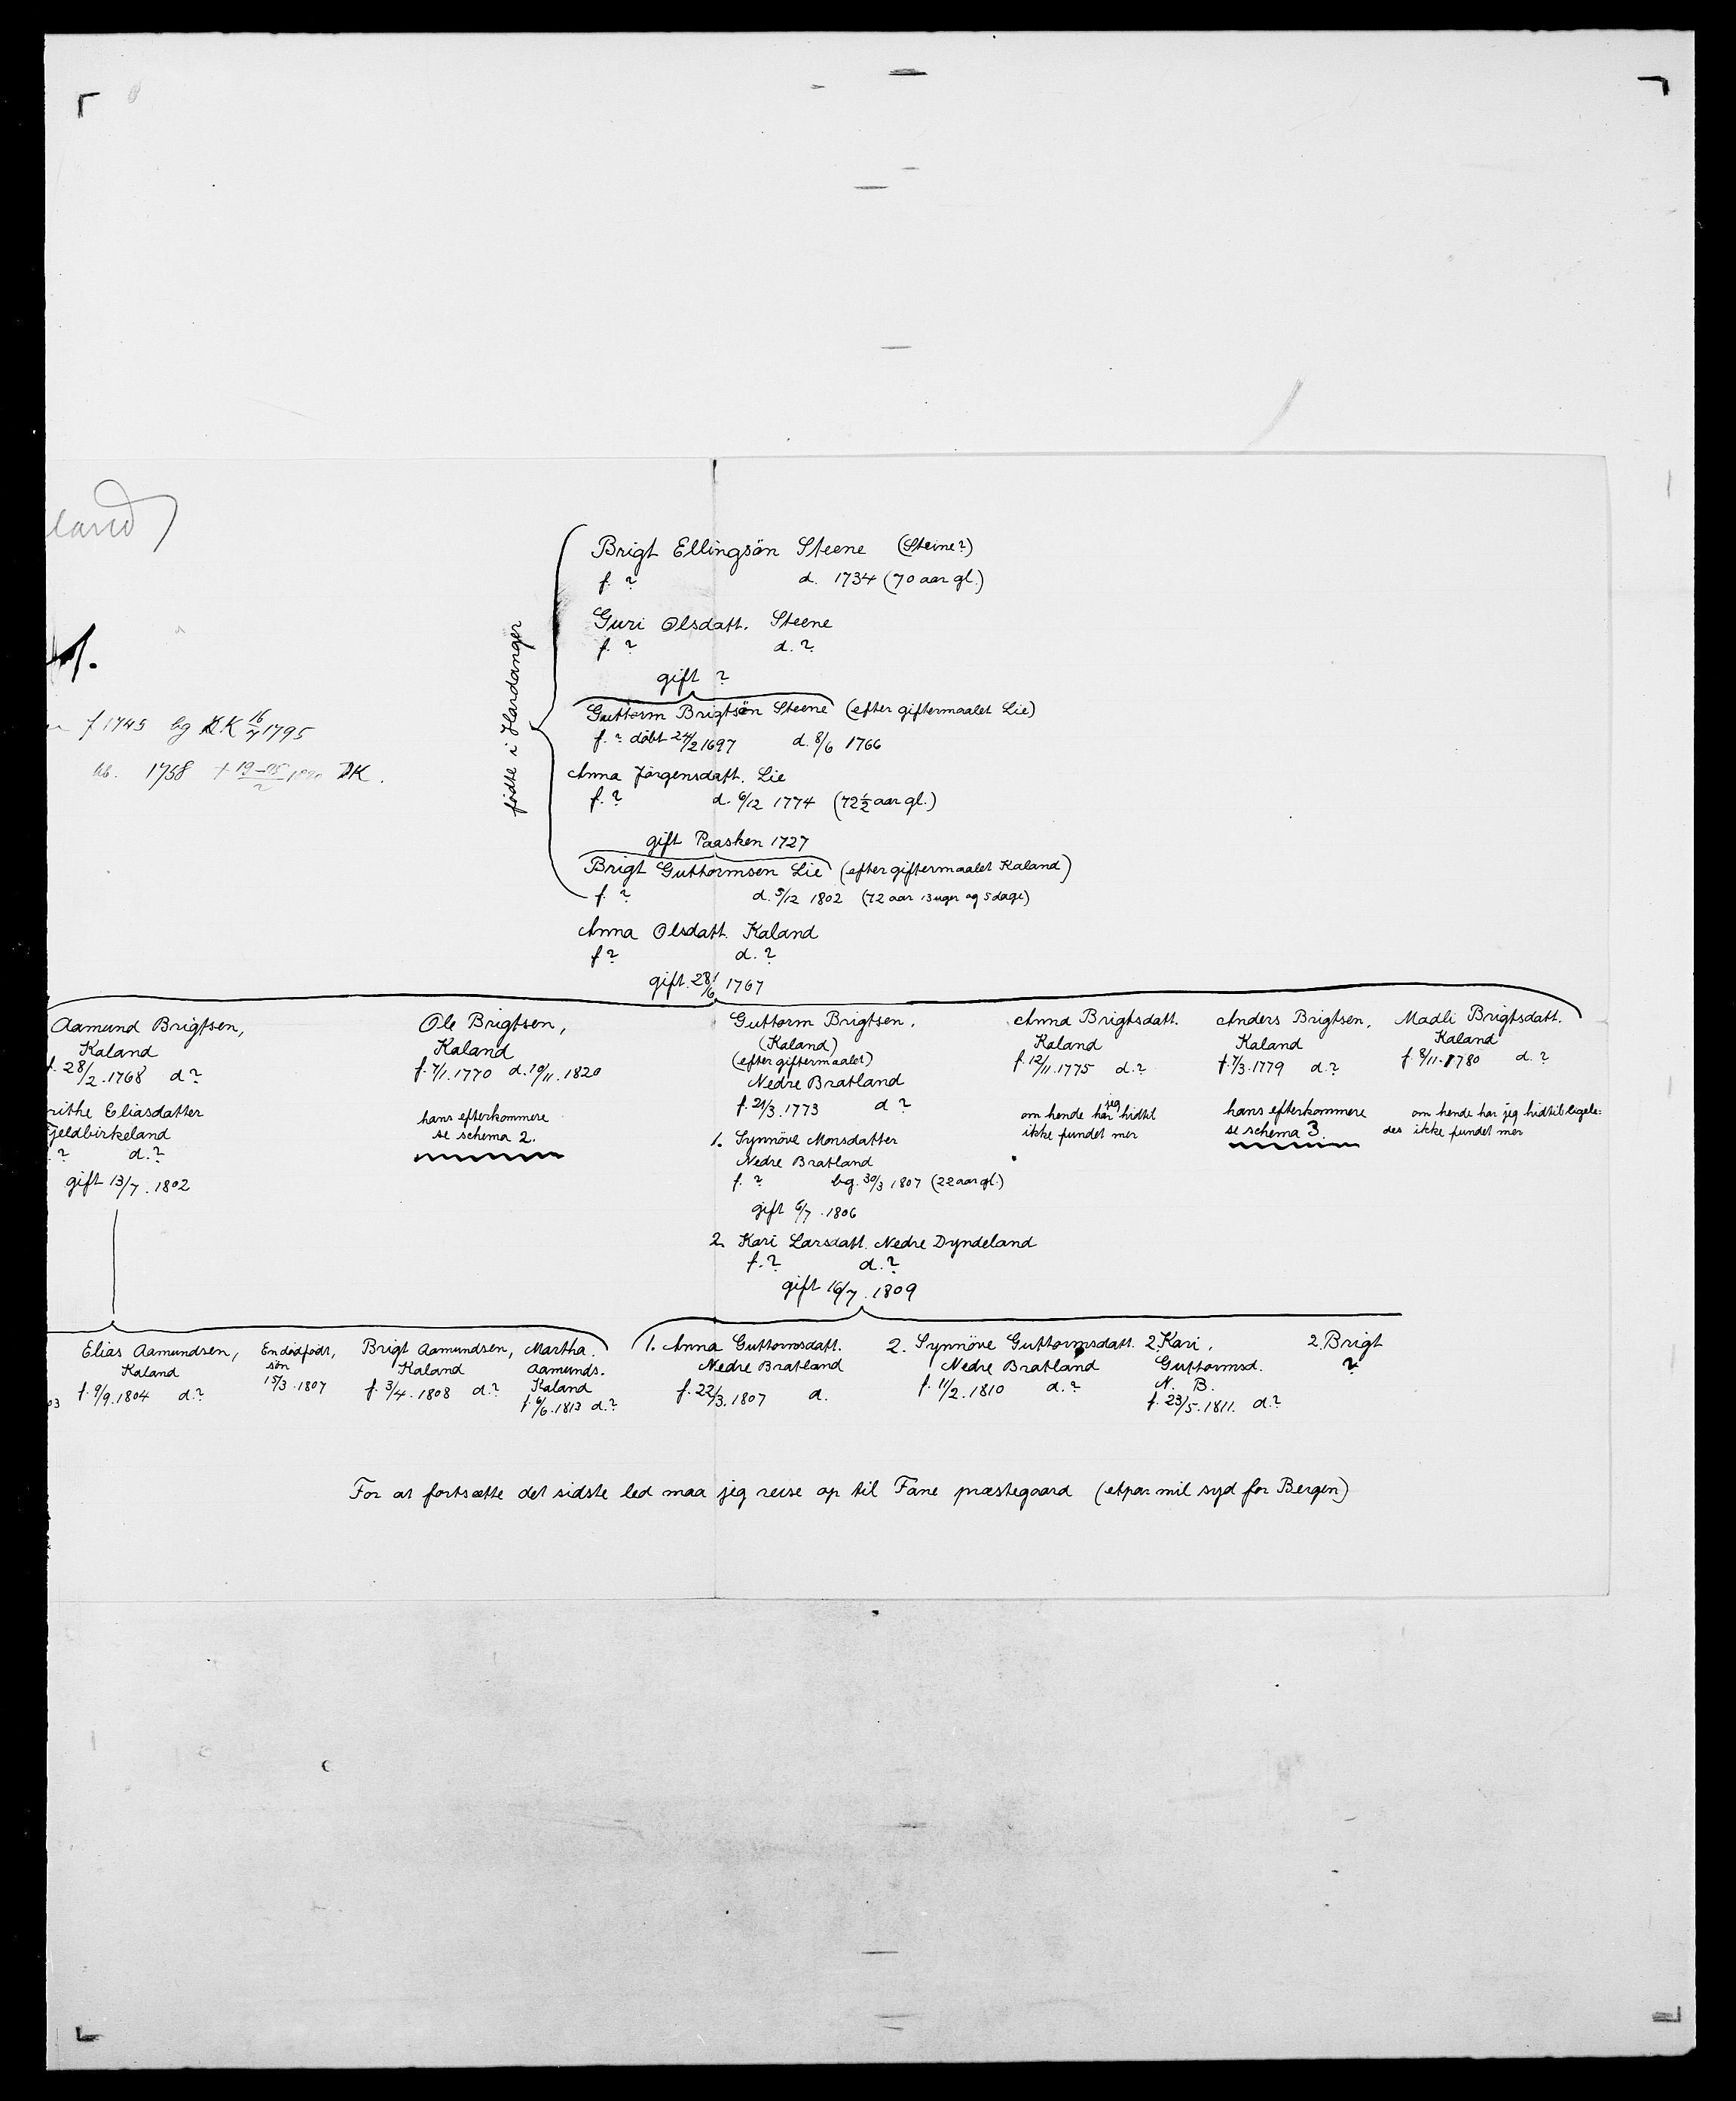 land)
f 1745 bg DK 16/7 1795
1758 DK.
fødte i Hardanger
Brigt Ellingsön Steene (Steine?)
f. ? d. 1734 (70 aar gl.)
Guri Olsdatt. Steene
f. ? d. ?
gift ?
Guttorm Brigtsön Steene (efter giftermaalet Lie)
f. ? döbt 24/2 1697 d. 8/6 1766
Anna Jörgensdatt. Lie
f. ? d. 6/12 1774 (72½ aar gl.)
gift Paasken 1727
Brigt Guttormsen Lie (efter giftermaalet Kaland)
f. ? d. 5/12 1802 (72 aar 13 uger og 5 dage)
Anna Olsdatt. Kaland
f ? d. ?
gift. 28/6 1767
Aamund Brigtsen,
Kaland
f. 28/2. 1768 d ?
rithe Eliasdatter
Fjeldbirkeland
? d. ?
gift 13/7. 1802
Ole Brigtsen,
Kaland
f. 7/1. 1770 d. 19/11. 1820
hans efterkommere
se schema 2.
Guttorm Brigtsen,
(Kaland)
(efter giftermaalet)
Nedre Bratland
f. 21/3. 1773 d ?
1. Synnöve Monsdatter
Nedre Bratland
f. ? bg. 30/3 1807 (22 aar gl.)
gift 6/7. 1806
2. Kari Larsdatt. Nedre Dyndeland
f. ? d. ?
gift 16/7. 1809
Anna Brigtsdatt.
Kaland
f. 12/11. 1775 d. ?
om hende har jeg hidtil
ikke fundet mer
Anders Brigtsen,
Kaland
f. 7/3. 1779 d. ?
hans efterkommere
se schema 3.
Madli Brigtsdatt.
Kaland
f. 8/11. 1780 d. ?
om hende har jeg hidtil ligele-
des ikke fundet mer
03
Elias Aamundsen,
Kaland
f. 9/9. 1804 d. ?
En dødfødt,
sön
15/3. 1807
Brigt Aamundsen,
Kaland
f. 3/4. 1808 d. ?
Martha.
Aamunds.
Kaland
f. 6/6. 1813 d. ?
1. Anna Guttormsdatt.
Nedre Bratland
f. 22/3. 1807 d.
2. Synnöve Guttormsdatt.
Nedre Bratland
f. 11/2. 1810 d. ?
2. Kari,
Guttormsd.
N. B.
f. 23/5. 1811. d. ?
2. Brigt
?
For at fortsætte det sidste led maa jeg reise op til Fane præstegaard (etpar mil syd for Bergen)